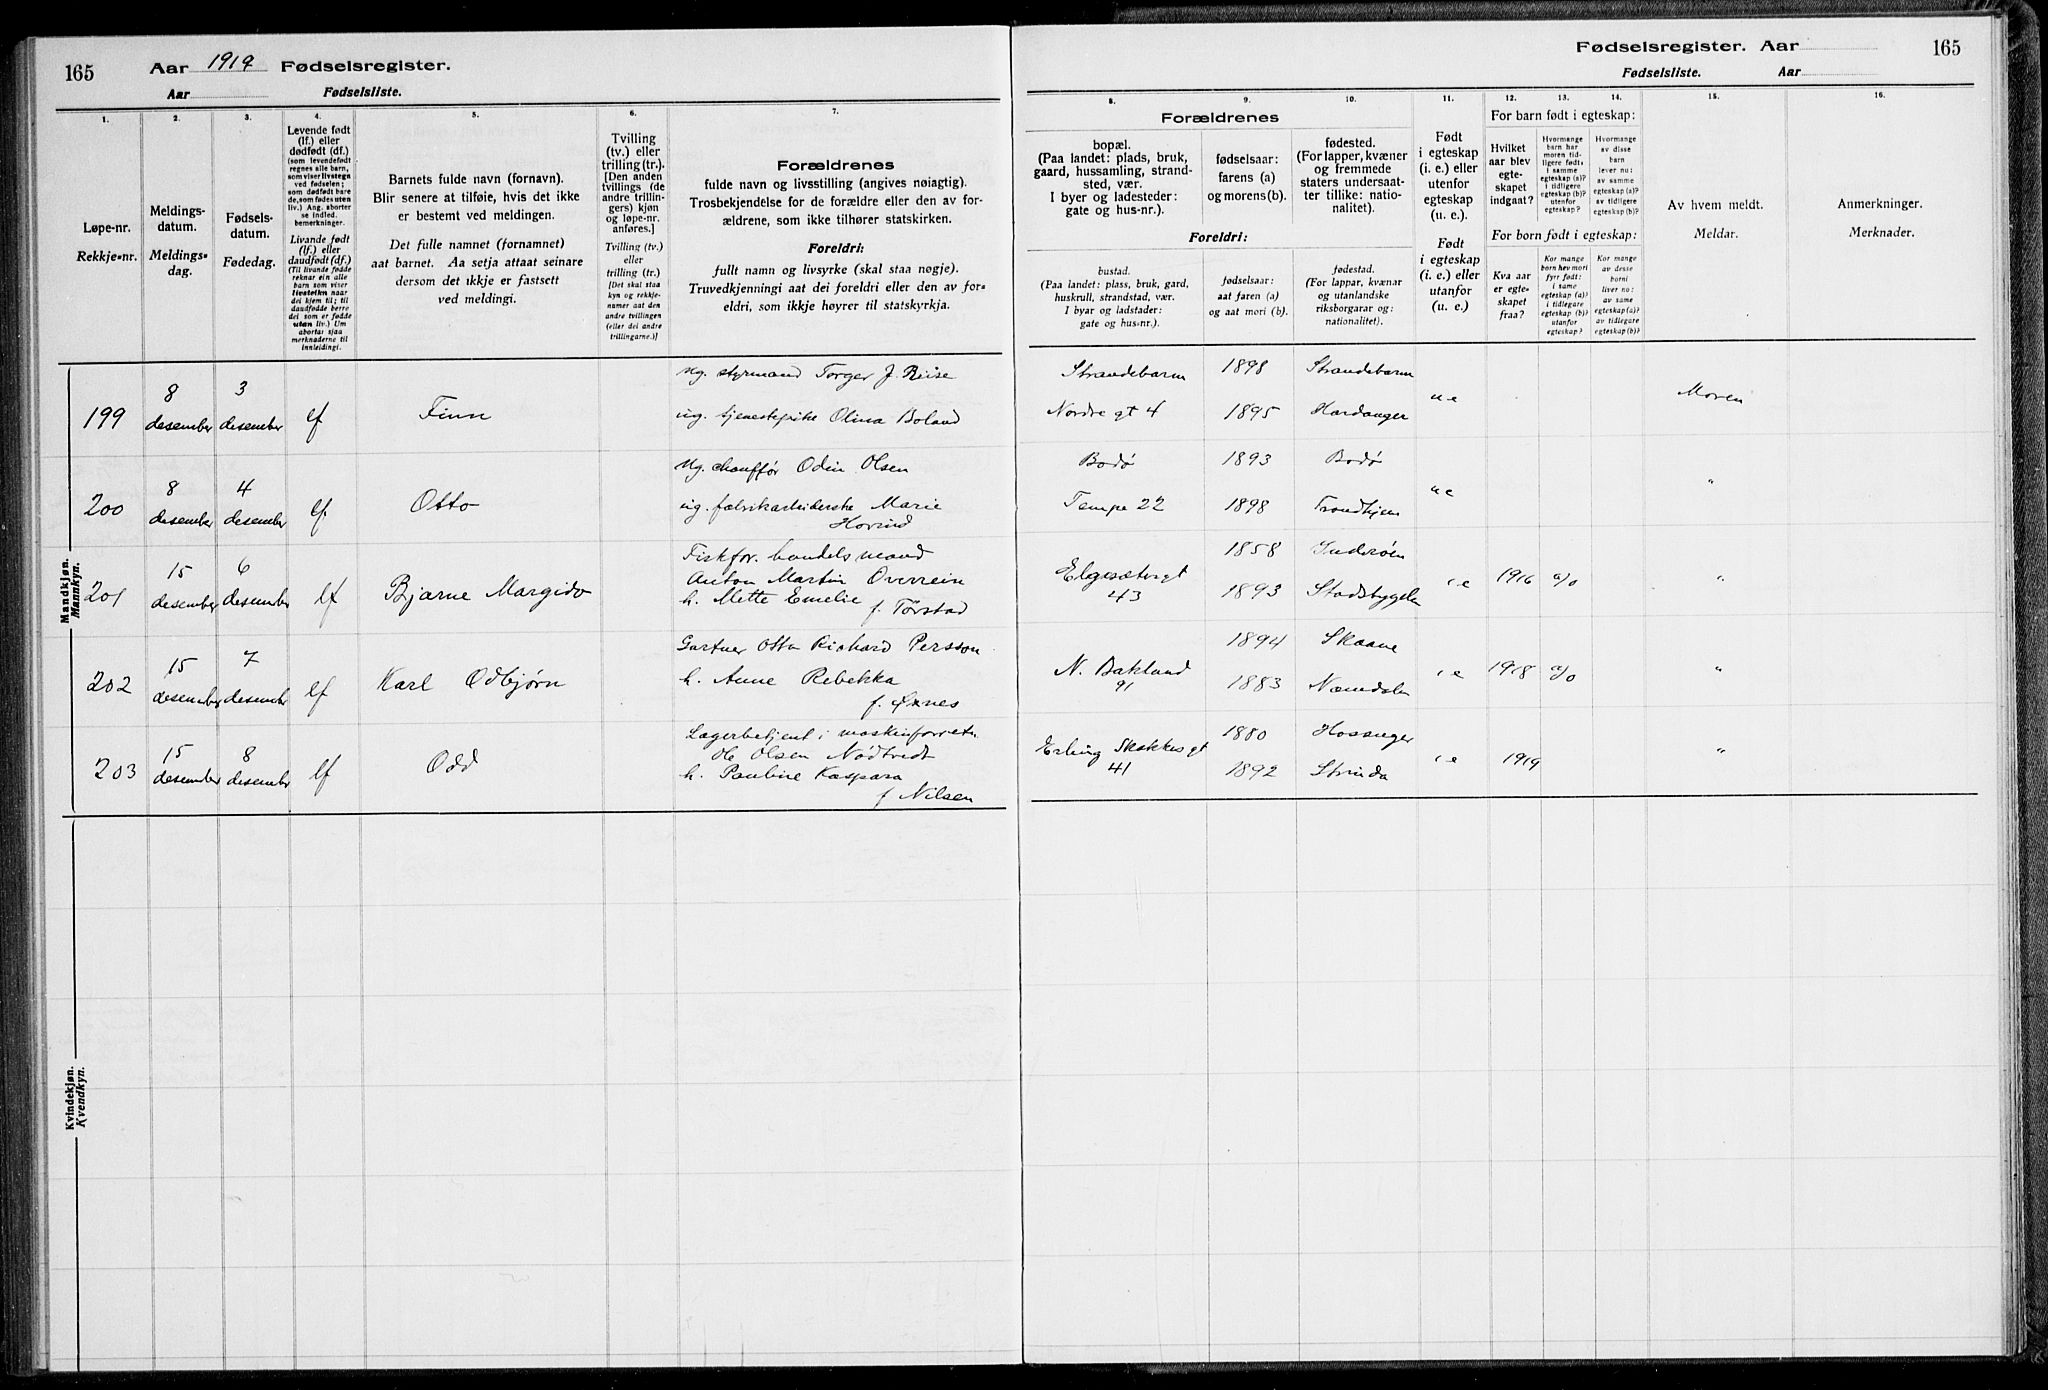 165
Aar 1919 Fødselsregister.
Aar Fødselsliste.
Fødselsregister. Aar
165
Fødselsliste. Aar
1.
Løpe-nr.
Rekkje-nr.
2.
Meldings-
datum.
Meldings-
dag.
3.
Fødsels-
datum.
Fødedag.
4.
Levende født
(lf.) eller
dødfødt (df.)
(som levendefødt
regnes alle barn,
som viser livstegn
ved fødselen;
som dødfødt bare
de, som fødes uten
liv.) Ang. aborter
se indled.
bemerkninger.
Livande født
(lf.) eller
daudfødt (df.)
(Til livande fødde
reknar ein alle
barn som viser
livsteikn naar
dei kjem til; til
daudfødde berre
dei som er fødde
utan liv.) Um
abortar sjaa
merknaderne til
innleidingi.
5.
Barnets fulde navn (fornavn).
Blir senere at tilføie, hvis det ikke
er bestemt ved meldingen.
Det fulle namnet (fornamnet)
aat barnet. Aa setja attaat seinare
dersom det ikkje er fastsett
ved meldingi.
6.
Tvilling
(tv.) eller
trilling (tr.).
[Den anden
tvillings (de
andre trillin-
gers) kjøn
og løpe-nr.
anføres.]
Tvilling (tv.)
eller
trilling (tr.)
[Det skal staa
kyn og rekkje-
numer aat den
andre tvillingen
(eller dei andre
trillingarne.)]
7.
Forældrenes
fulde navn og livsstilling (angives nøiagtig).
Trosbekjendelse for de forældre eller den av for-
ældrene, som ikke tilhører statskirken.
Foreldri:
fullt namn og livsyrke (skal staa nøgje).
Truvedkjenningi aat dei foreldri eller den av for-
eldri, som ikkje høyrer til statskyrkja.
8.
9.
10.
Forældrenes
bopæl.
(Paa landet: plads, bruk,
gaard, hussamling, strand-
sted, vær.
I byer og ladesteder:
gate og hus-nr.).
fødselsaar:
farens (a)
og morens (b).
fødested.
(For lapper, kvæner
og fremmede
staters undersaat-
ter tillike: natio-
nalitet).
Foreldri:
bustad.
(Paa landet: plass, bruk, gard,
huskrull, strandstad, vær.
I byar og ladstader:
gate og hus-nr.).
fødselsaar:
aat faren (a)
og aat mori (b).
fødestad.
(For lappar, kvænar
og utanlandske
riksborgarar og:
nationalitet).
11.
Født
i egteskap
(i. e.) eller
utenfor
egteskap
(u. e.).
Født
i egteskap
(i. e.) eller
utanfor
(u. e.)
12.
13.
14.
For barn født i egteskap:
Hvilket
aar blev
egte-
skapet
indgaat?
Hvormange
barn har
moren tid-
ligere født:
i samme
egteskap (a)?
i tidligere
egteskap (b)?
utenfor
egteskap?
Hvormange
av disse
barn
lever nu:
av samme
egteskap (a)?
av tidligere
egteskap (b)?
For born født i egteskap:
Kva aar
er egte-
skapet
fraa?
Kor mange
born hev mori
fyrr født:
i same
egteskap (a)?
i tidlegare
egteskap (b)?
utanfor
egteskap?
Kor mange
av desse
borni
liver no:
av same
egteskap (a)?
av tidlegare
egteskap (b)?
15.
Av hvem meldt.
Meldar.
16.
Anmerkninger.
Merknader.
Mandkjøn.
Mannkyn.
199
8
desember
3
desember
lf
Finn
Ug. styrmand Torger J. Riise
ug. tjenestepike Olina Boland
Strandebarm
Nordre gt 4
1898
1895
Strandebarm
Hardanger
u e
Moren
200
8
desember
4
desember
lf.
Otto
Ug. chauffør Odin Olsen
ug. fabrikarbeiderske Marie
Hovind
Bodø
Tempe 22
1893
1898
Bodø
Trondhjem
u e
"
201
15
desember
6
desember
lf
Bjarne Margido
Fiskfor. handelsmand
Anton Martin Overrein
h. Mette Emelie f. Tørstad
Elgesætergt
43
1858
1893
Inderøen
Stadsbygden
i e
1916
a/0
"
202
15
desember
7
desember
lf
Karl Odbjørn
Gartner Otto Richard Persson
h. Anne Rebekka
f. Øxnes
N. Bakland
91
1894
1883
Skaane
Namdalen
i e
1918
a/0
"
203
15
desember
8
desember
lf
Odd
Lagerbetjent i maskinforretn
Ole Olsen Nødtvedt
h. Pauline Kaspara
f Nilsen
Erling Skakkes gt
41
1880
1892
Hossanger
Strinda
i e
1919
"
Kvindekjøn.
Kvendkyn.